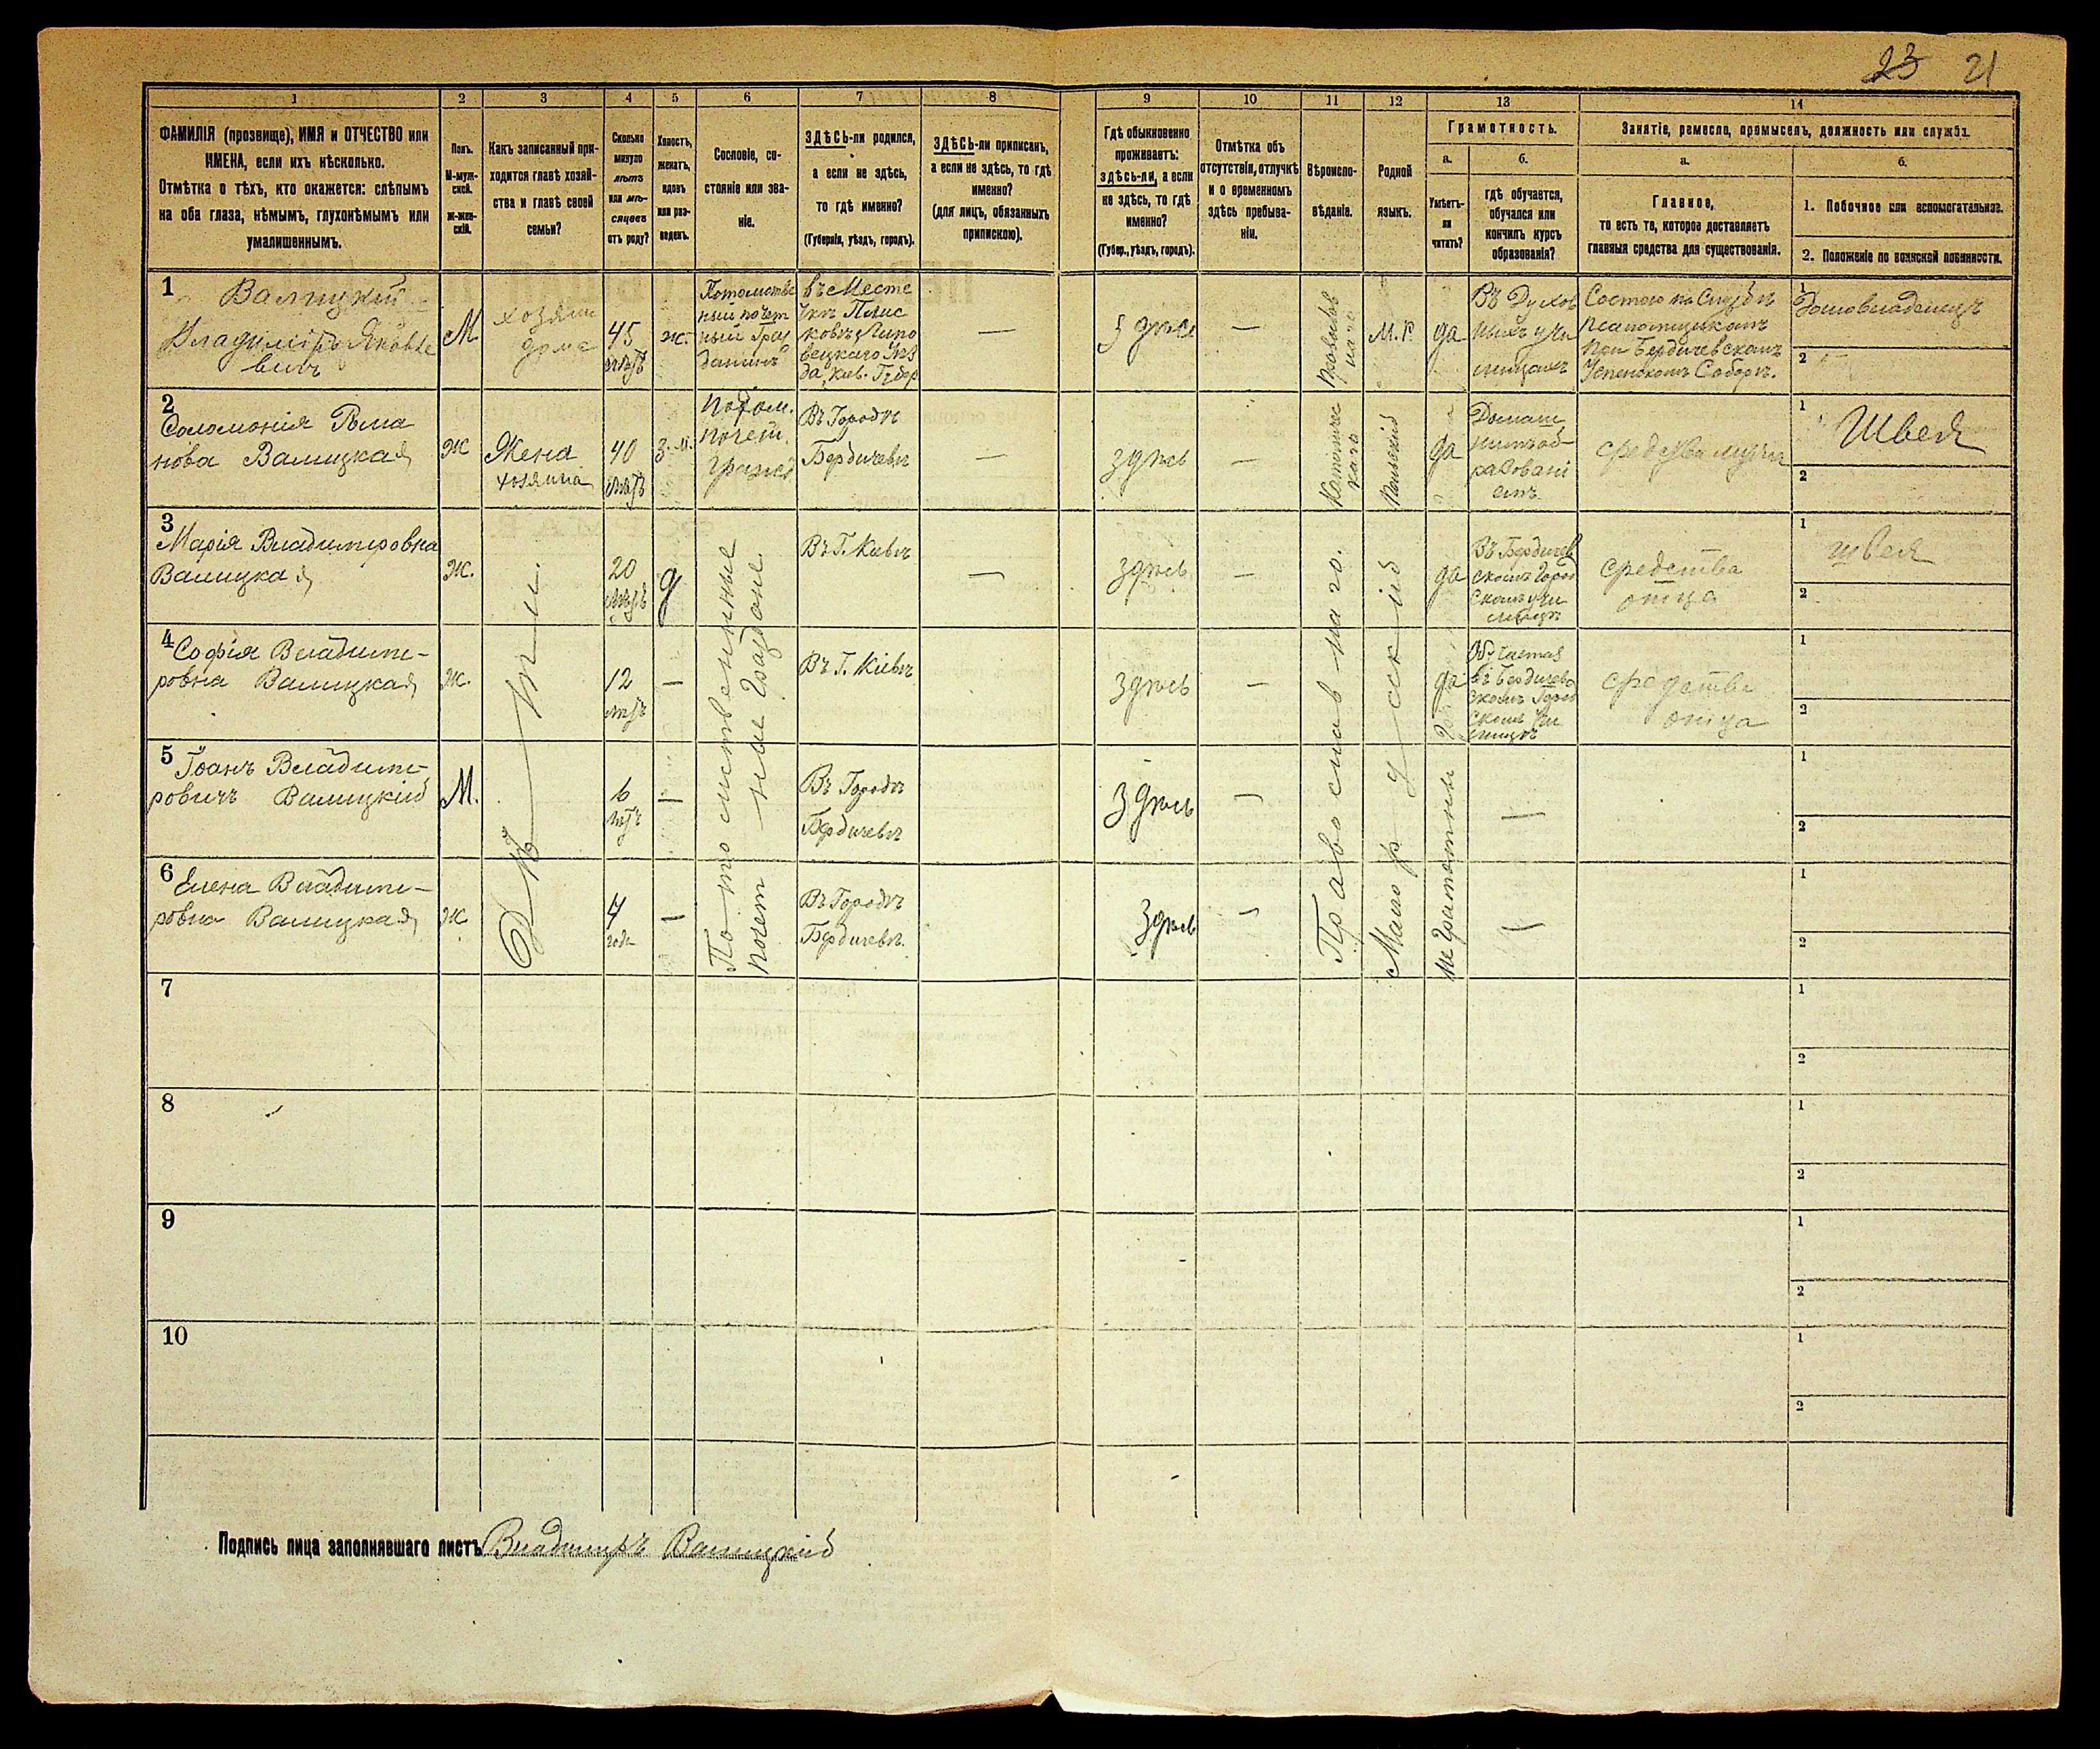 23 21
1 2 3 4 5 6 7 8 9 10 11 12 13 14
ФАМИЛІЯ (прозвище), ИМЯ и ОТЧЕСТВО или
ИМЕНА, если ихъ нѣсколько.
Отмѣтка о тѣхъ, кто окажется: слѣпымъ
на оба глаза, нѣмымъ, глухонѣмымъ или
умалишеннымъ.
Полъ.
М-муж-
ской.
Ж-жен-
скій.
Какъ записанный при-
ходится главѣ хозяй-
ства и главѣ своей
семьи?
Сколько
минуло
лѣтъ
или мѣ-
сяцевъ
отъ роду?
Холостъ,
женатъ,
вдовъ
или раз-
веденъ.
Сословіе, со-
стояніе или зва-
ніе.
ЗДѢСЬ-ли родился,
а если не здѣсь,
то гдѣ именно?
(Губернія, уѣздъ, городъ).
ЗДѢСЬ-ли приписанъ,
а если не здѣсь, то гдѣ
именно?
(для лицъ, обязанныхъ
припискою).
Гдѣ обыкновенно
проживаетъ:
здѣсь-ли, а если
не здѣсь, то гдѣ
именно?
(Губер., уѣздъ, городъ).
Отмѣтка объ
отсутствіи, отлучкѣ
и о временномъ
здѣсь пребыва-
ніи.
Вѣроиспо-
вѣданіе.
Родной
языкъ.
Грамотность.
а.
Умѣетъ-
ли
читать?
б.
гдѣ обучается,
обучался или
кончилъ курсъ
образованія?
Занятіе, ремесло, промыселъ, должность или служба.
а.
Главное,
то есть то, которое доставляетъ
главныя средства для существованія.
б.
1. Побочное или вспомогательное.
2. Положеніе по воинской повинности.
1
Валицкий
Владиміръ Яковле
вичъ
М
хозяин
дома
45
лѣтъ
ж.
Потомстве
ный почет
ный Граж
данинъ
въ Месте
чкѣ Плис
ковѣ Липо
вецкаго Уѣз
да, Киев. Губер
—
здѣсь
—
Православ
наго
М. Р.
да
Въ Духов
ныхъ учи
лищахъ
Состою на Службѣ
псаломщикомъ
При Бердичевскомъ
Успенскомъ Соборѣ.
1
Домовладелецъ
2
2
Соломонія Рома
нова Валицкая
Ж
Жена
хозяина
40
лѣтъ
З. м.
потом.
почет.
Гражд
Въ Городѣ
Бердичевѣ
—
здѣсь
—
Католичес
каго
Польский
да
Домаш
нимъ об-
разовані
емъ
средства мужа
1
Швея
2
3
Марія Владимировна
Валицкая
Ж.
20
лѣтъ
д
Въ Г. Киевѣ
—
здѣсь
—
да
Въ Бердичев
скомъ Город
скомъ учи
лищѣ
средства
отца
1
швея
2
4
Софія Владими-
ровна Валицкая
Ж.
12
лѣтъ
—
Въ Г. Кіевѣ
—
здѣсь
—
да
Обучается
въ Бердичев
скомъ Город
скомъ Учи
лищѣ
средства
отца
1
2
5
Іоанъ Владими-
ровичъ Валицкій
М.
6
лѣтъ
—
Въ Городѣ
Бердичевѣ
здѣсь
—
—
1
2
6
Елена Владими-
ровна Валицкая
Ж
4
года
—
Въ Городѣ
Бердичевѣ.
здѣсь
—
—
1
2
Дѣти.
Потомственные
почетные Граждане
Православнаго.
Малорусский
не Грамотны
7
1
2
8
1
2
9
1
2
10
1
2
Подпись лица заполнявшаго листъ Владимиръ Валицкій